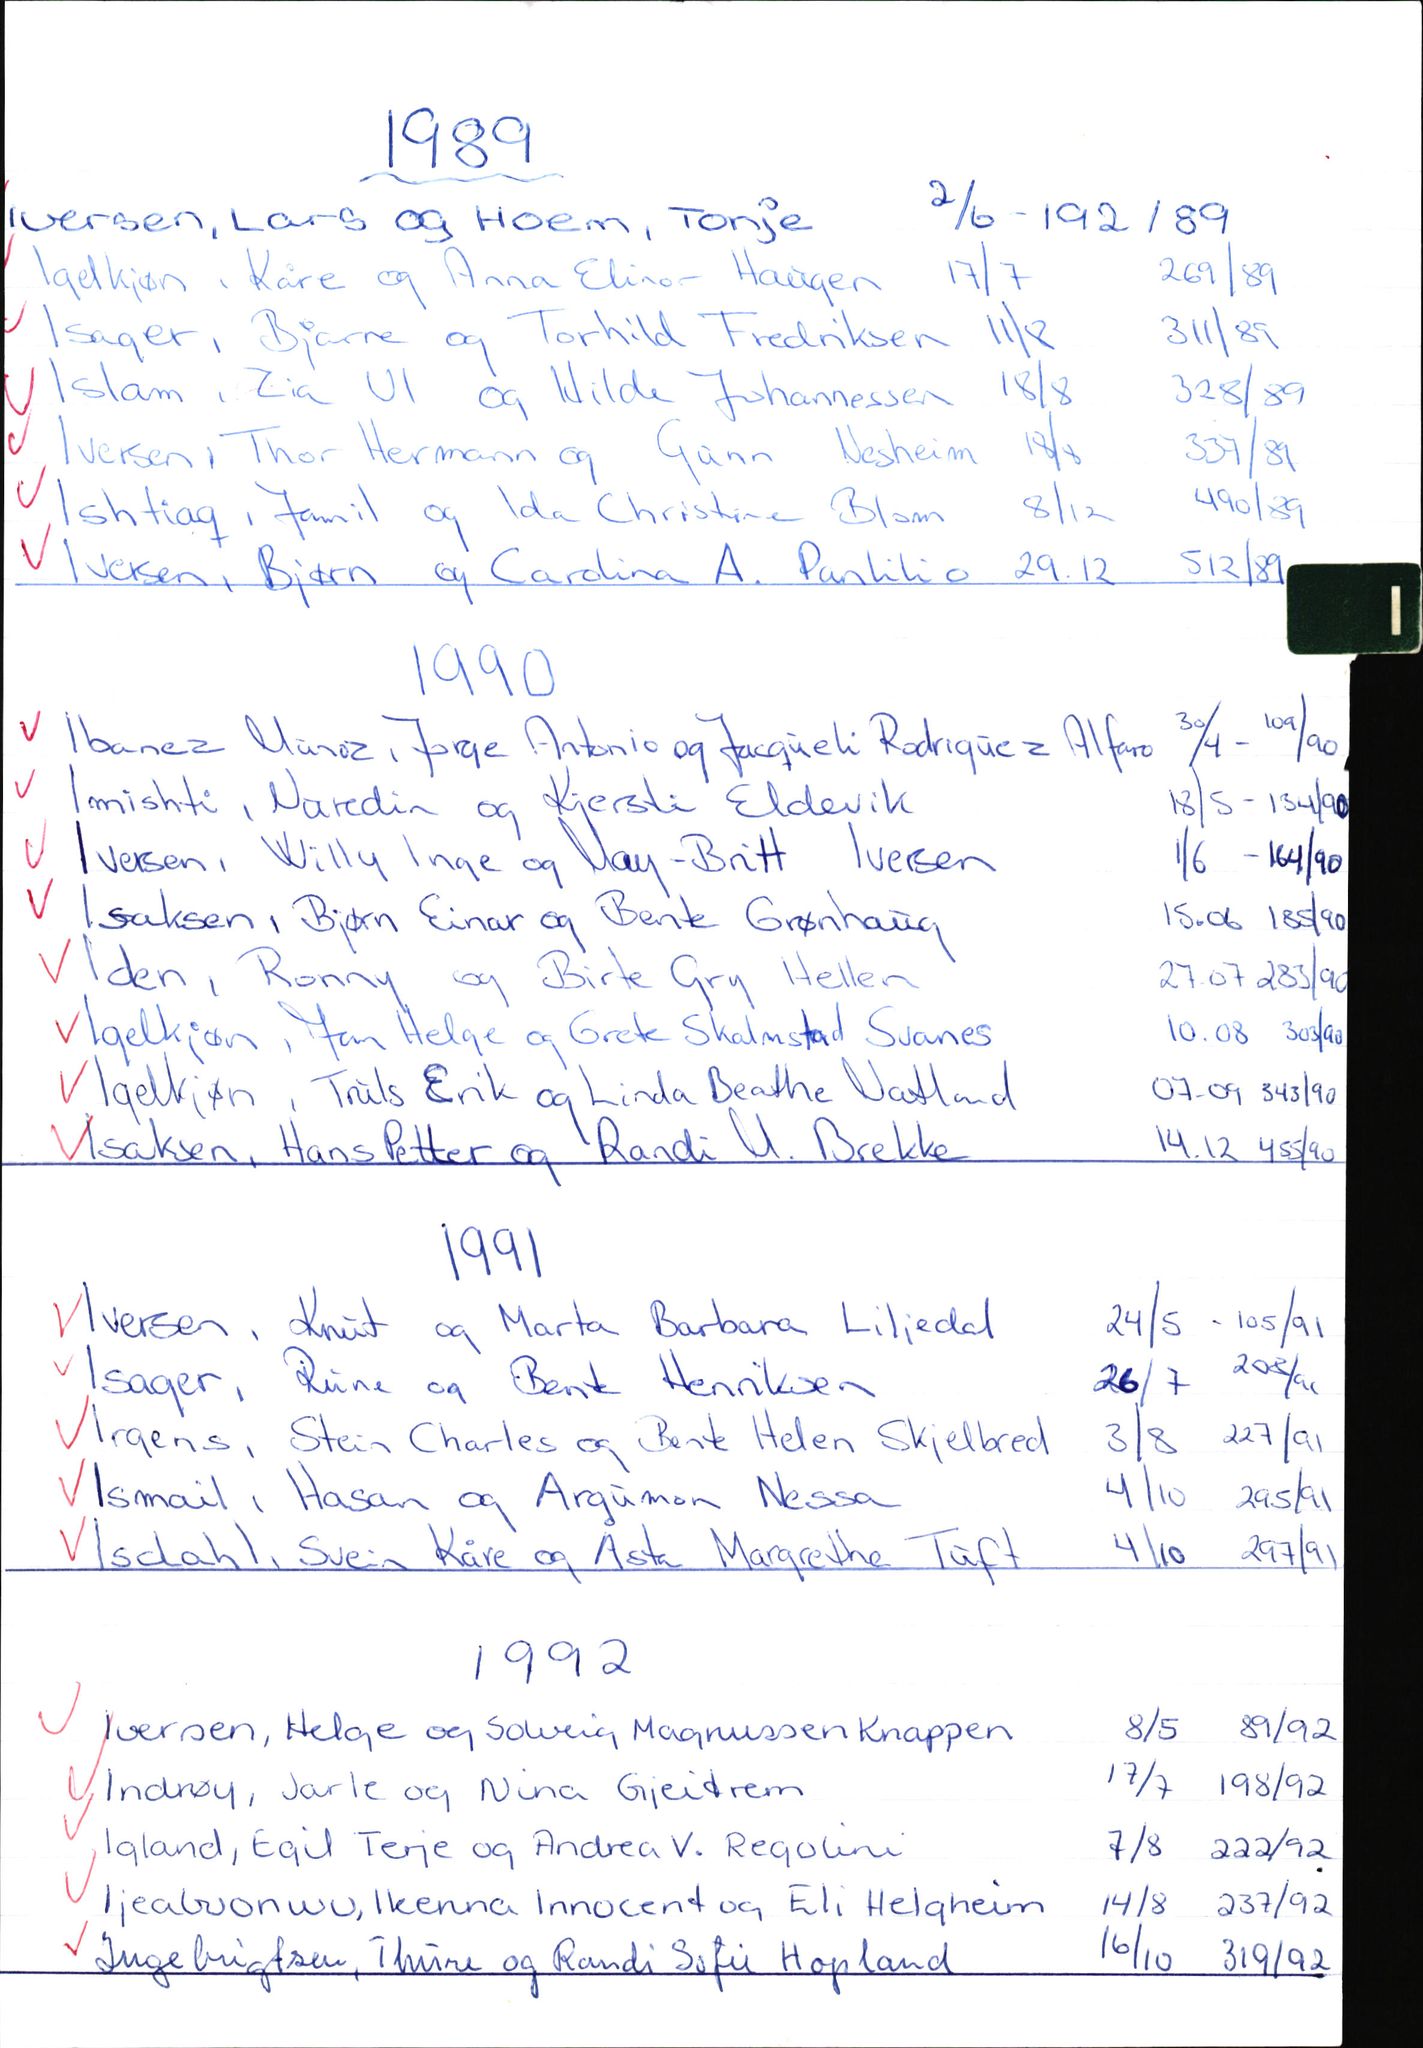 1989
Iversen, Lars og Hoem, Tonje 2/6 - 192 / 89
Igelkjøn, Kåre og Anna Elinor Haugen 17/7 269/89
Isager, Bjarne og Torhild Fredriksen 11/8 311/89
Islam, Zia Ul og Hilde Johannessen 18/8 328/89
Iversen, Thor Hermann og Gunn Nesheim 18/8 337/89
Ishtiaq, Jamil og Ida Christine Blom 8/12 490/89
Iversen, Bjørn og Carolina A. Panlilio 29.12 512/89
I
1990
Ibanez Munoz, Jorge Antonio og Jacqueli Rodriquez Alfaro 30/4 - 109/90
Imishti, Naredin og Kjersti Eldevik 18/5 - 134/90
Iversen, Willy Inge og May-Britt Iversen 1/6 - 164/90
Isaksen, Bjørn Einar og Bente Grønhaug 15.06 185/90
Iden, Ronny og Birte Gry Hellen 27.07 283/90
Igelkjøn, Jan Helge og Grete Skalmstad Svanes 10.08 303/90
Igelkjøn, Truls Erik og Linda Beathe Natland 07.09 343/90
Isaksen, Hans Petter og Randi U. Brekke 14.12 455/90
1991
Iversen, Knut og Marta Barbara Liljedal 24/5 - 105/91
Isager, Rune og Bente Henriksen 26/7 208/91
Irgens, Stein Charles og Bente Helen Skjelbred 3/8 227/91
Ismail, Hasan og Argumon Nessa 4/10 295/91
Isdahl, Svein Kåre og Åsta Margrethe Tuft 4/10 297/91
1992
Iversen, Helge og Solveig Magnussen Knappen 8/5 89/92
Indrøy, Jarle og Nina Gjeitrem 17/7 198/92
Igland, Egil Terje og Andrea V. Regolini 7/8 222/92
Ijeabuonwu, Ikenna Innocent og Eli Helgheim 14/8 237/92
Ingebrigtsen, Thure og Randi Sofie Hopland 16/10 319/92